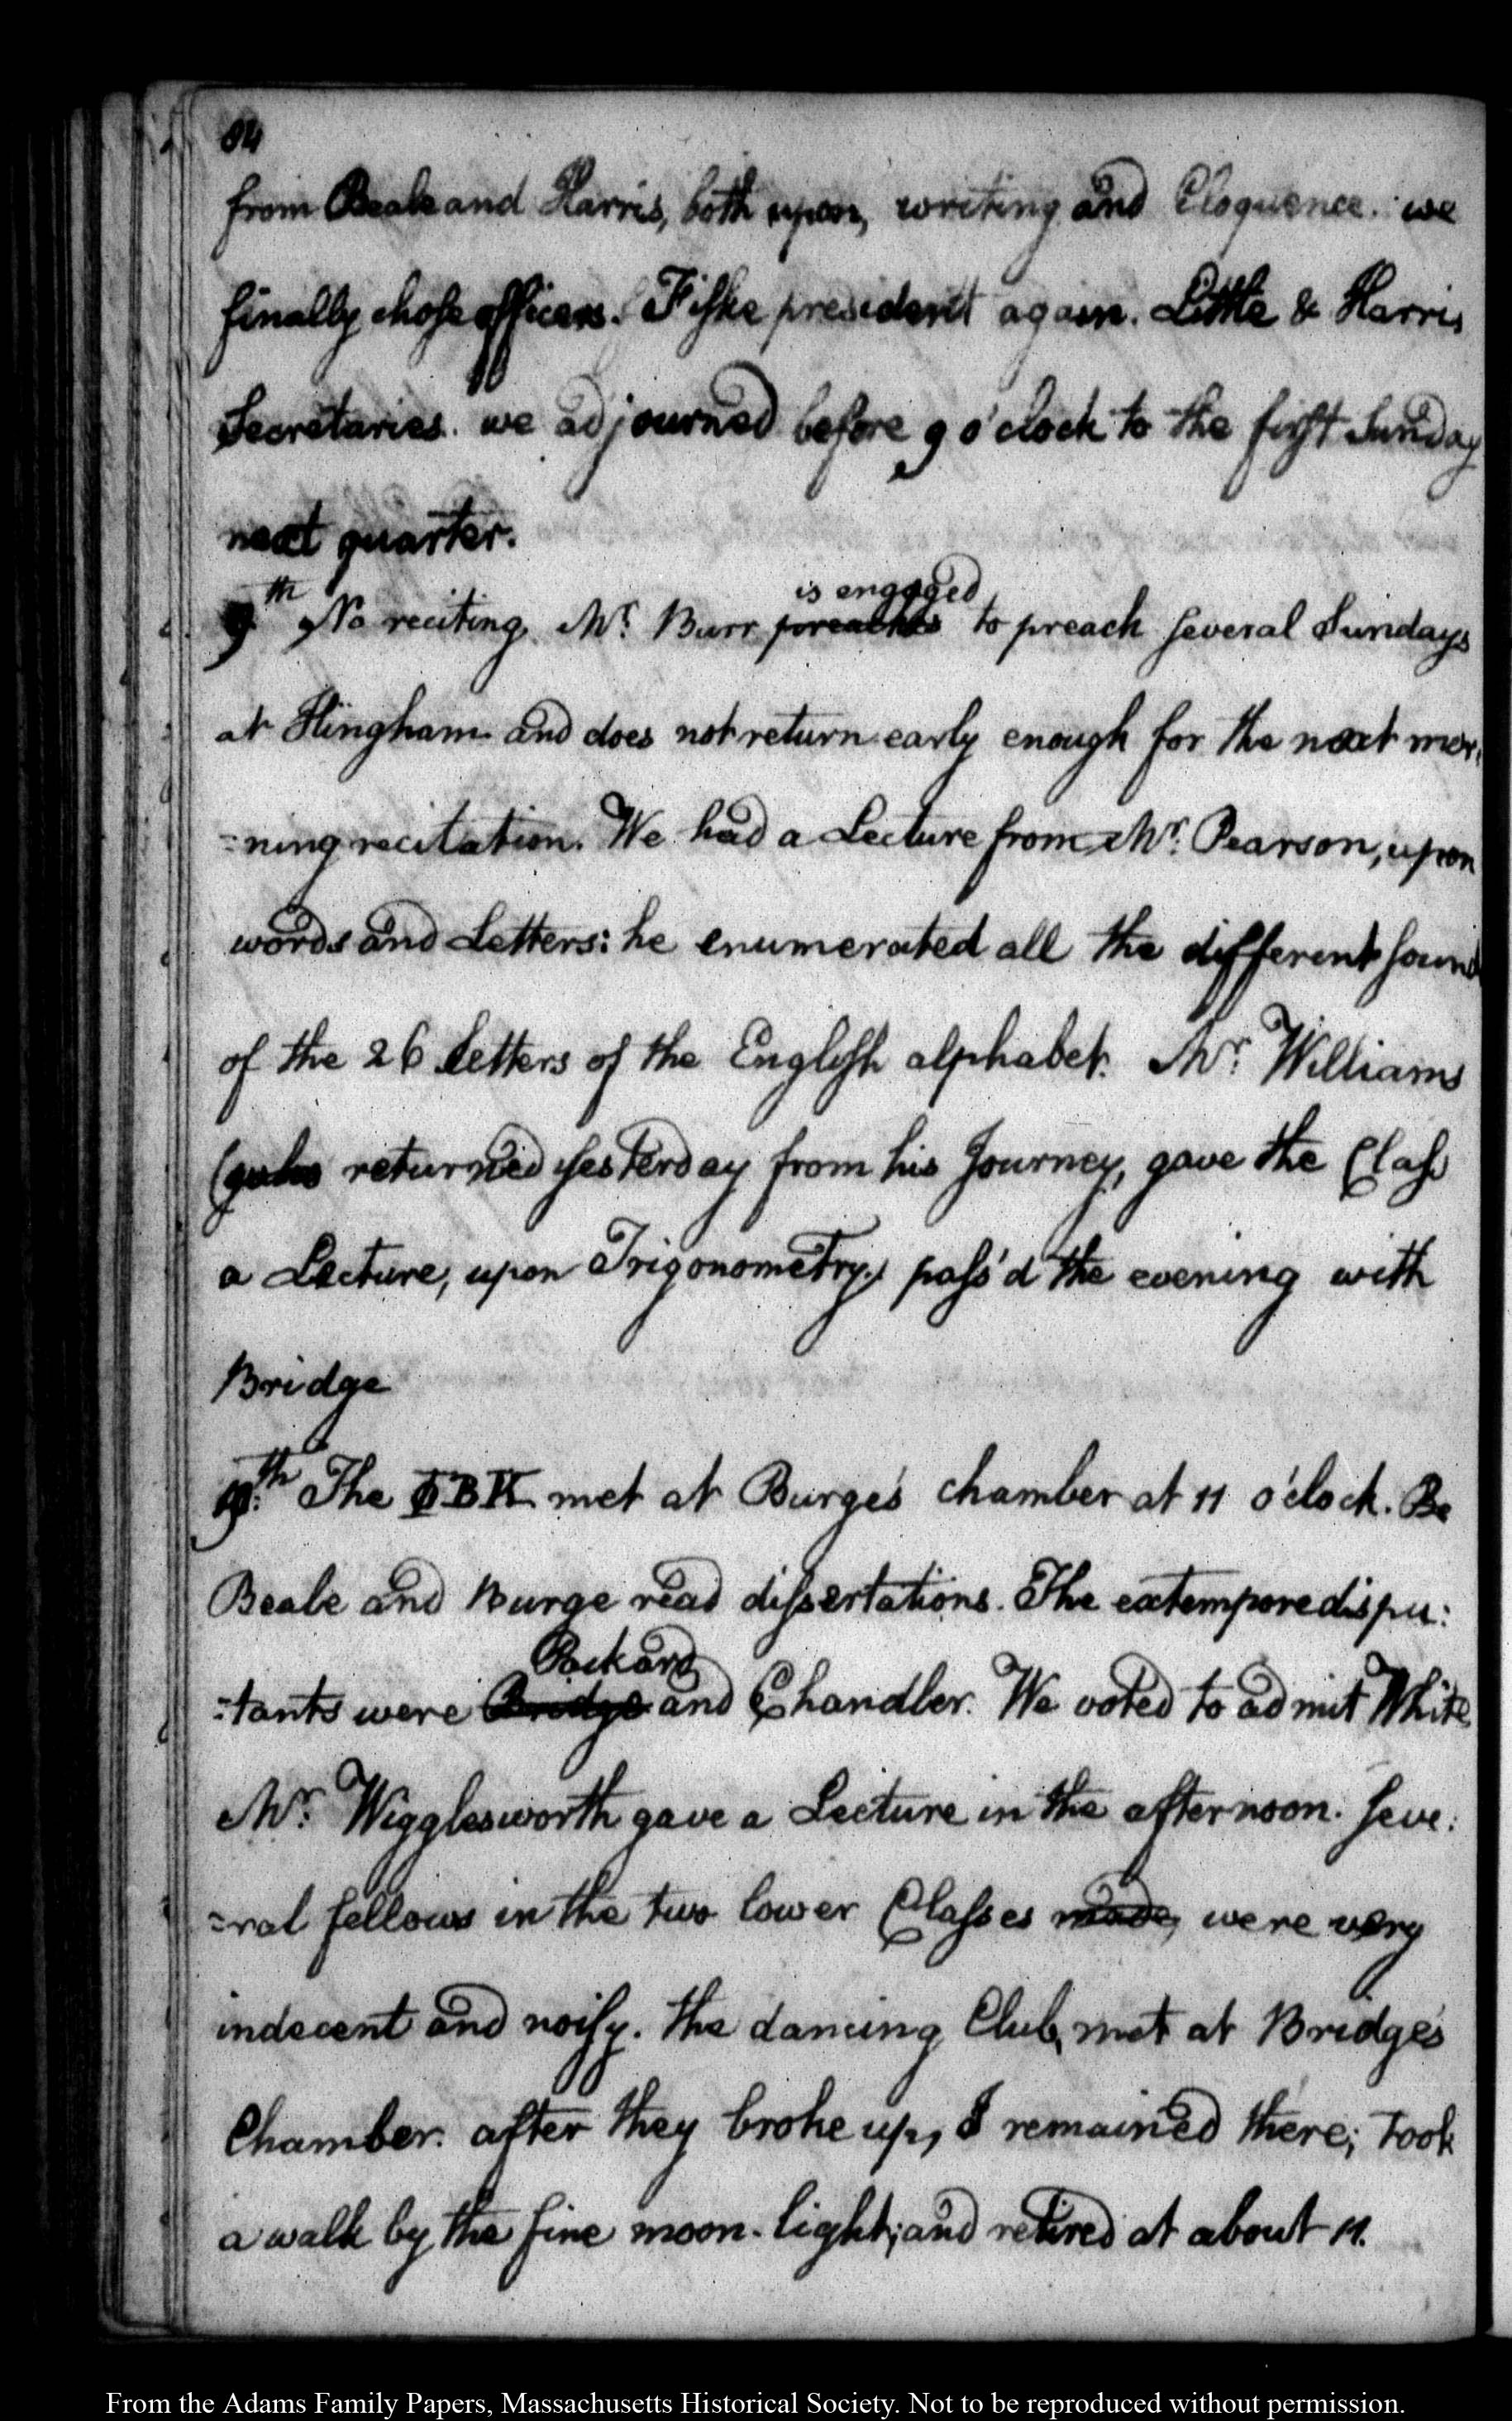 84
from Beale and Harris, both upon, writing and Eloquence. we
finally chose officers. Fiske president again. Little & Harris
Secretaries. we adjourned before 9 o'clock to the first Sunday
next quarter.
9th No reciting. Mr. Burr preaches is engaged to preach several Sundays
at Hingham and does not return early enough for the next mor-
=ning recitation. We had a Lecture from Mr. Pearson, upon
words and Letters: he enumerated all the different sound
of the 26 Letters of the English alphabet. Mr. Williams
(who returned yesterday from his Journey, gave the Class
a Lecture, upon Trigonometry.) pass'd the evening with
Bridge
10th The ΦBK met at Burge's chamber at 11 o'clock. Be
Beale and Burge read dissertations. The extempore dispu:
=tants were Bridge Packard and Chandler. We voted to admit White
Mr. Wigglesworth gave a Lecture in the afternoon. Seve:
=ral fellows in the two lower Classes made, were very
indecent and noisy. the dancing Club, met at Bridge's
Chamber. after they broke up, I remained there; took
a walk by the fine moon-light; and retired at about 11.
From the Adams Family Papers, Massachusetts Historical Society. Not to be reproduced without permission.